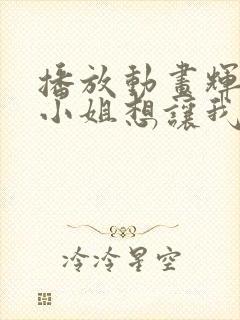 播放動畫輝
小姐想讓我
冷冷星空